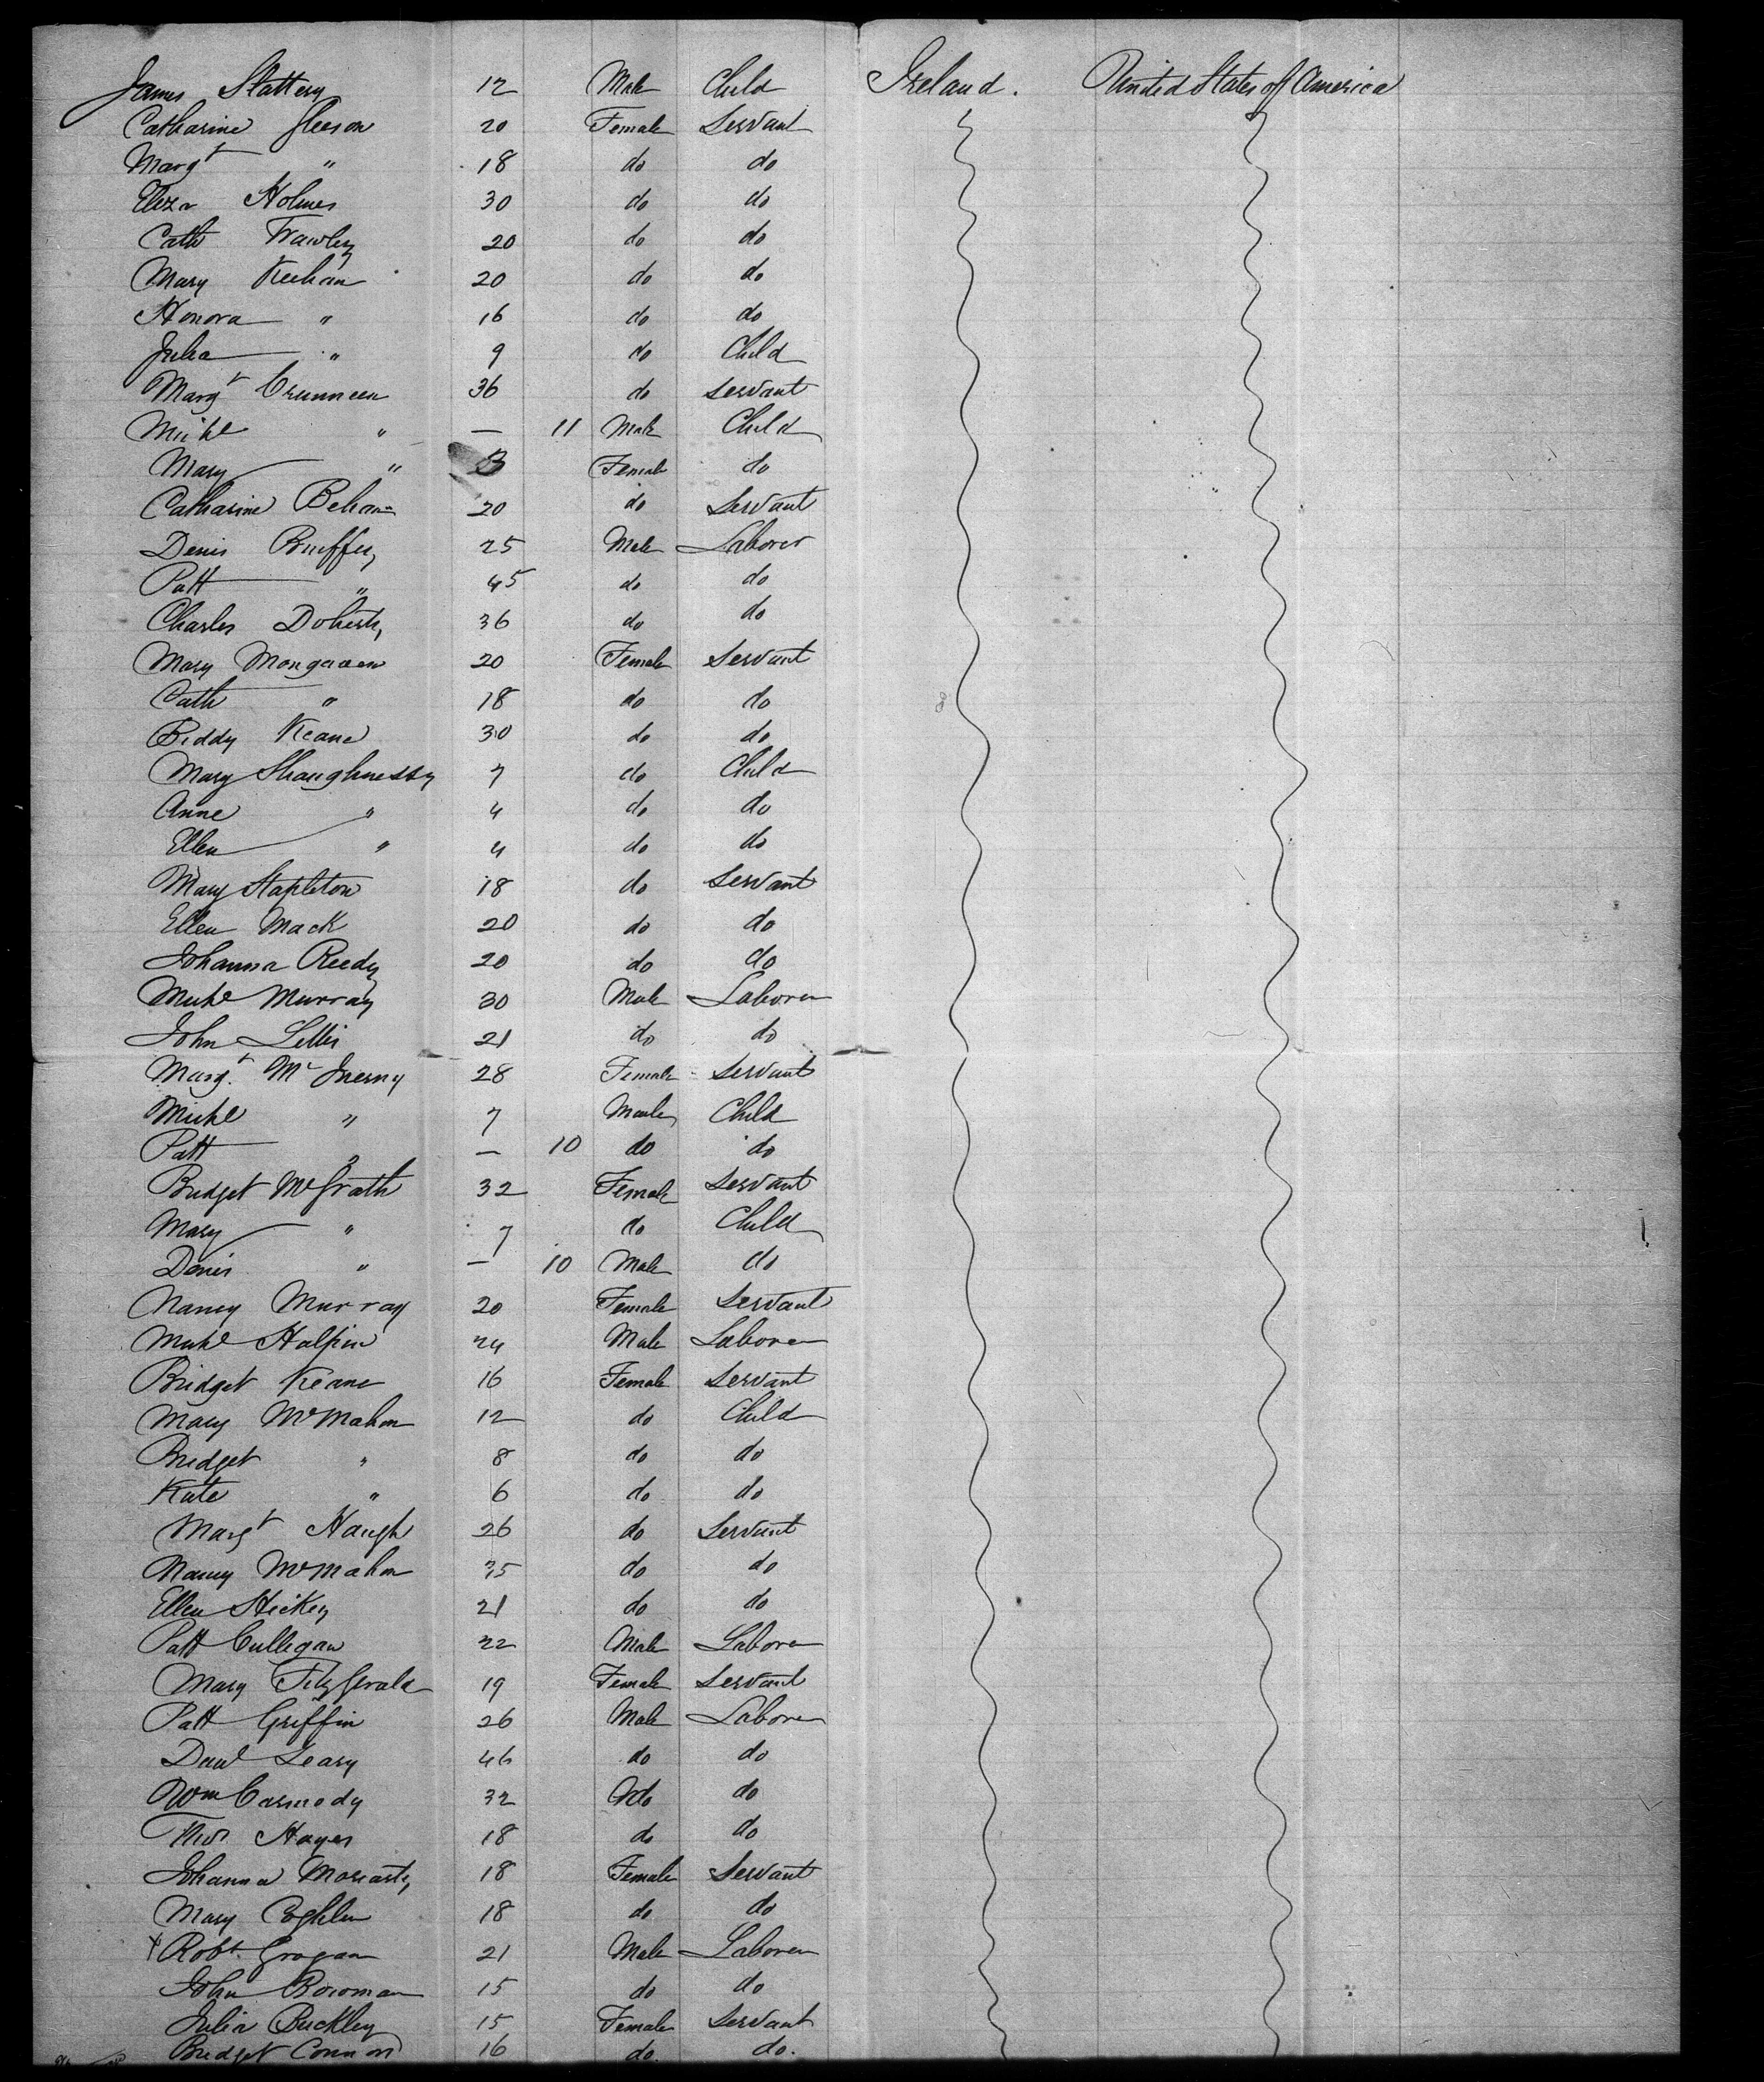 James Slattery 12 Male Child Ireland. United States of America
Catharine Gleeson 20 Female Servant
Margt " 18 do do
Eliza Holmes 30 do do
Cath Frawley 20 do do
Mary Keehan 20 do do
Honora " 16 do do
Julia " 9 do Child
Margt Crunneen 36 do Servant
Michl " — 11 Male Child
Mary " 3 Female do
Catharine Behan 20 do Servant
Denis 25 Male Laborer
Patt " 45 do do
Charles Doherty 36 do do
Mary 20 Female Servant
Cath " 18 do do
Biddy Keane 30 do do
Mary Shaughnessy 7 do Child
Anne " 4 do do
Ellen " 4 do do
Mary Stapleton 18 do Servant
Ellen Mack 20 do do
Johanna Reedy 20 do do
Michl Murray 30 Male Laborer
John Lillis 21 do do
Margt. Mc Inerny 28 Female Servant
Michl " 7 Male Child
Patt " — 10 do do
Bridget McGrath 32 Female Servant
Mary " 7 do Child
Denis " — 10 Male do
Nancy Murray 20 Female Servant
Michl Halpin 24 Male Laborer
Bridget Keane 16 Female Servant
Mary McMahon 12 do Child
Bridget " 8 do do
Kate " 6 do do
Margt Haugh 26 do Servant
Nancy McMahon 35 do do
Ellen Hickey 21 do do
Patt Culligan 22 Male Laborer
Mary FitzGerald 19 Female Servant
Patt Griffin 26 Male Laborer
Danl Leary 46 do do
Wm Carmody 32 do do
Thos Hayes 18 do do
Johanna Moriarty 18 Female Servant
Mary Coghlan 18 do do
X Robt. Grogan 21 Male Laborer
John Bowman 15 do do
Julia Buckley 15 Female Servant
Bridget Connors 16 do. do.